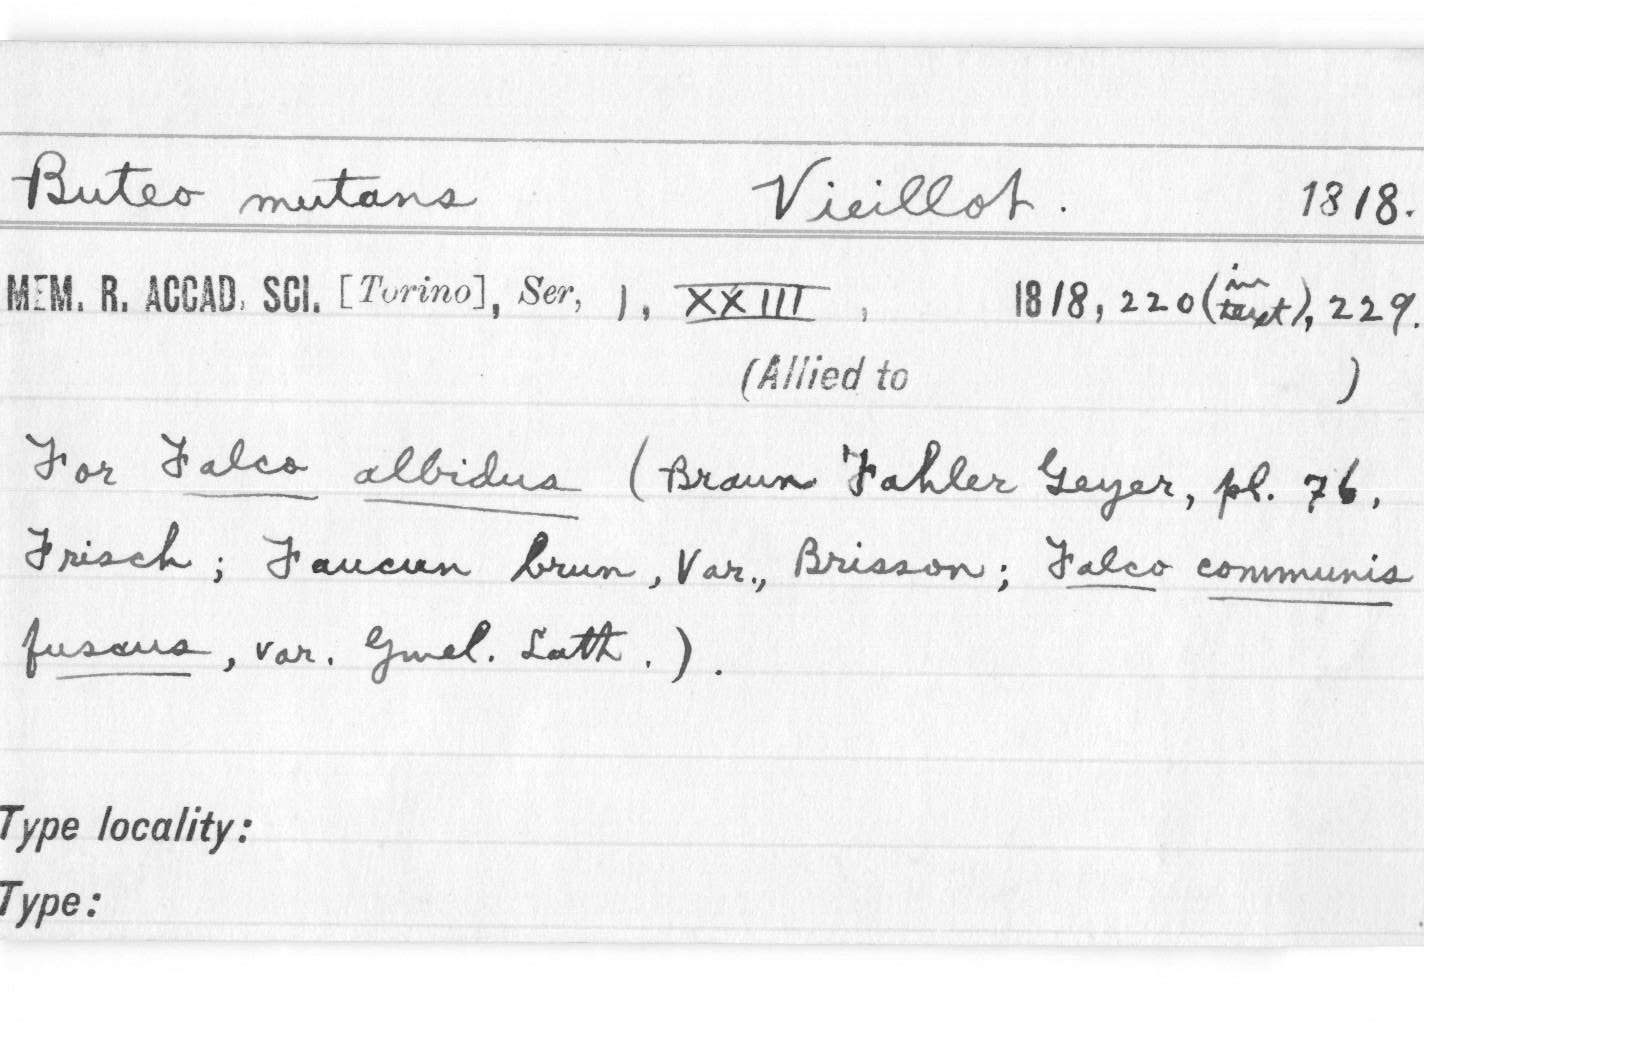 Buteo mutans Vieillot. 1818.
MEM. R. ACCAD. SCI. [Torino], Ser, 1, XXIII, 1818, 220 (in text), 229.
(Allied to )
For Falco albidus (Braun Fahler Geyer, pl. 76,
Frisch; Faucun brun, Var., Brisson; Falco communis
fuscus, var. Gmel. Lath.).
Type locality:
Type: